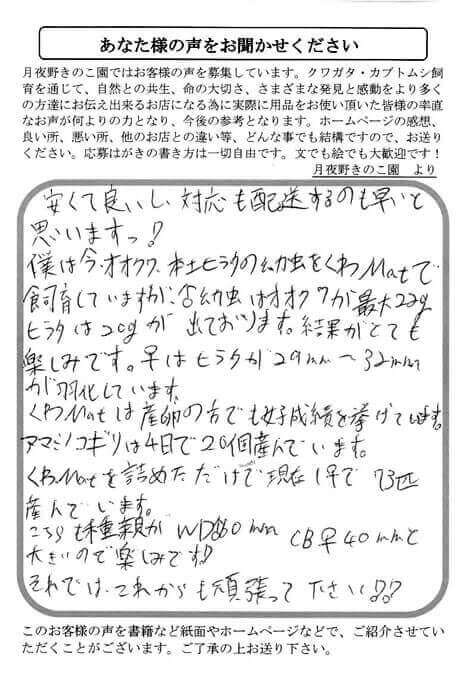 あなた様の声をお聞かせください
月夜野きのこ園ではお客様の声を募集しています。クワガタ・カブトムシ飼
育を通じて、自然との共生、命の大切さ、さまざまな発見と感動をより多く
の方達にお伝え出来るお店になる為に実際に用品をお使い頂いた皆様の率直
なお声が何よりの力となり、今後の参考となります。ホームページの感想、
良い所、悪い所、他のお店との違い等、どんな事でも結構ですので、お送り
ください。応募はがきの書き方は一切自由です。文でも絵でも大歓迎です！
月夜野きのこ園 より
安くて良いし対応も配送するのも早いと
思いますっ！
僕は今、オオクワ、本土ヒラタの幼虫をくわMatで
飼育していますが、♂幼虫はオオクワが最大22g
ヒラタは20gが出ております。結果がとても
楽しみです。♀はヒラタが29mm〜32mm
が羽化しています。
くわMatは産卵の方でも好成績を挙げています。
アマミノコギリは4日で20個産んでいます。
くわMatを詰めただけで現在1♀で73匹
産んでいます。
こちらも種親が WD♂80mm CB♀40mmと
大きいので楽しみです!!
それでは、これからも頑張って下さい!!
このお客様の声を書籍など紙面やホームページなどで、ご紹介させてい
ただくことがございます。ご了承の上お送り下さい。